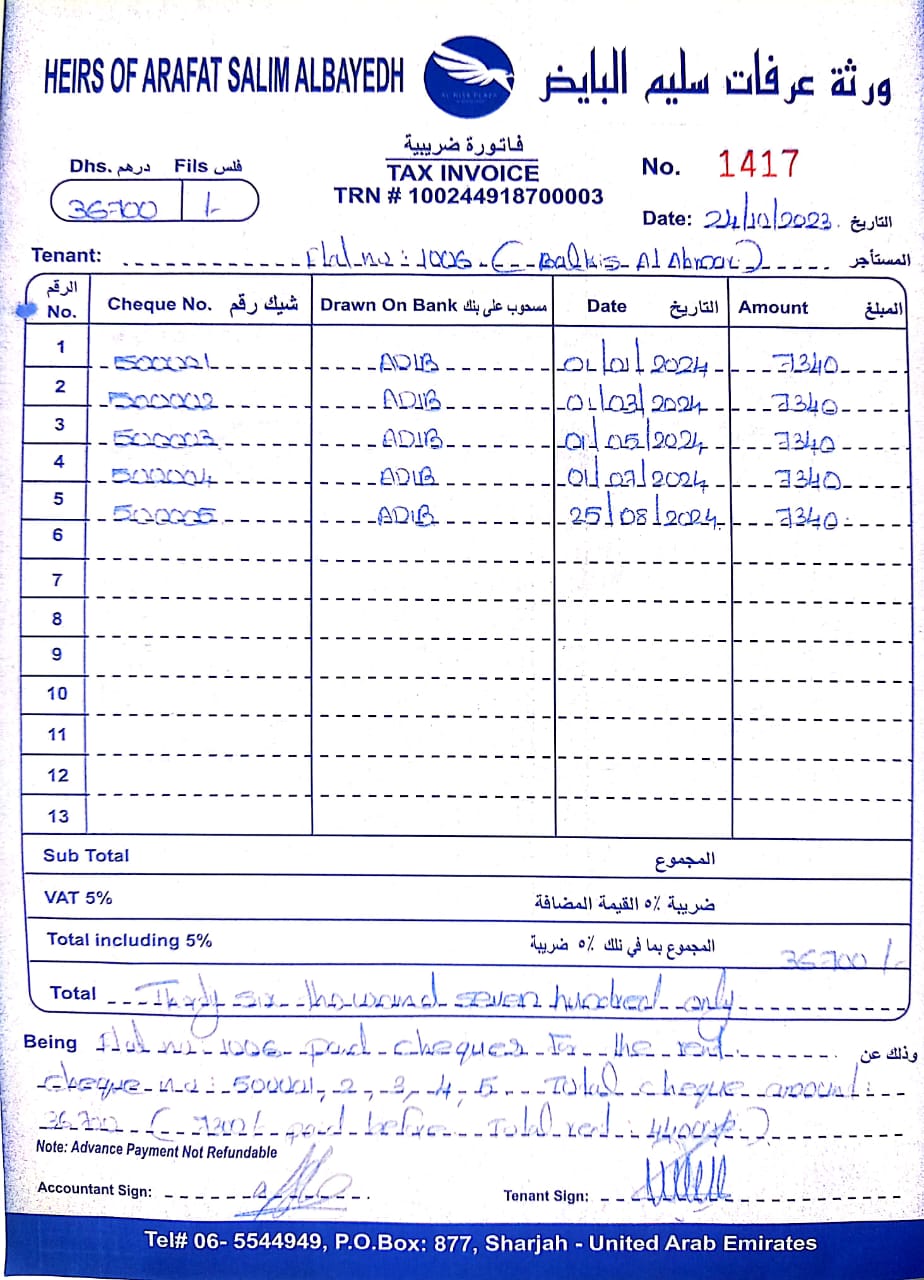 HEIRS OF ARAFAT SALIM ALBAYEDH
ورثة عرفات سليم البايض
AL HISN PLAZA
فاتورة ضريبية
TAX INVOICE
TRN # 100244918700003
Dhs. درهم Fils فلس
36700 /-
No. 1417
Date: 24/10/2023 التاريخ
Tenant: Flat no : 1006 (Balkis Al Abrar) المستأجر
الرقم No. Cheque No. شيك رقم Drawn On Bank مسحوب على بنك Date التاريخ Amount المبلغ
1 500001 ADIB 01/01/2024 7340
2 500002 ADIB 01/03/2024 7340
3 500003 ADIB 01/05/2024 7340
4 500004 ADIB 01/07/2024 7340
5 500005 ADIB 25/08/2024 7340
6
7
8
9
10
11
12
13
Sub Total المجموع
VAT 5% ضريبة ٥٪ القيمة المضافة
Total including 5% المجموع بما في ذلك ٥٪ ضريبة 36700 /-
Total Thirty six thousand seven hundred only
Being Flat no 1006 paid cheques for the rent وذلك عن
cheque no : 500001, 2, 3, 4, 5 Total cheque amount :
36700 ( 7300/- paid before Total rent : 44000/-)
Note: Advance Payment Not Refundable
Accountant Sign:
Tenant Sign:
Tel# 06- 5544949, P.O.Box: 877, Sharjah - United Arab Emirates